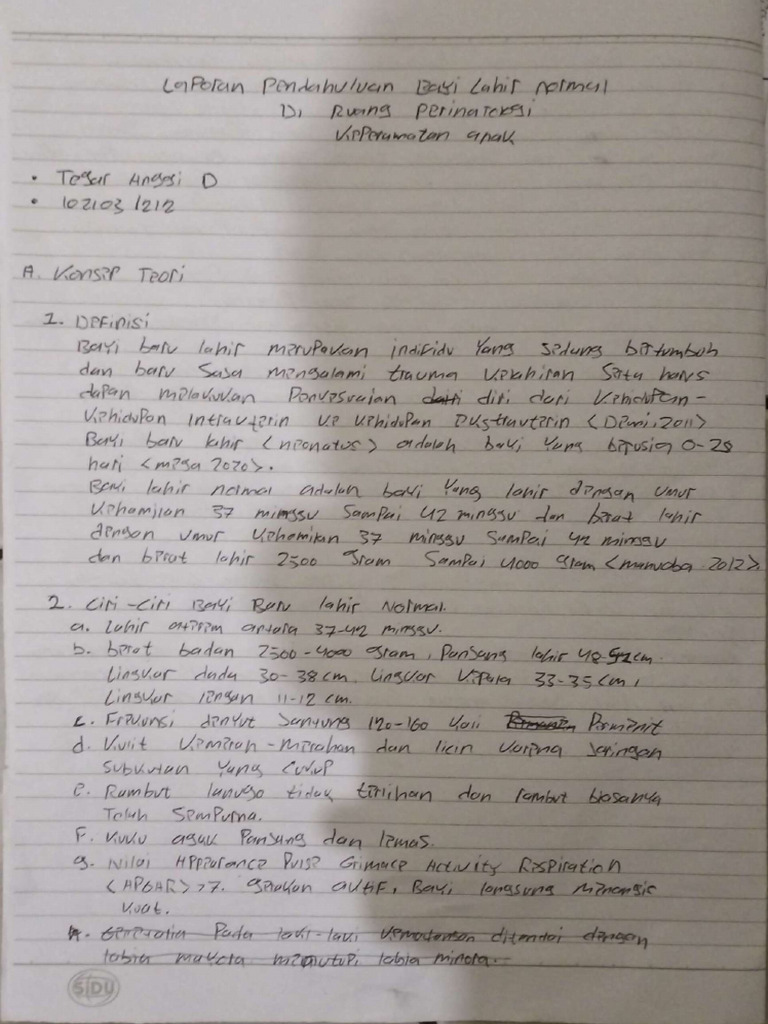 Laporan Pendahuluan Bayi Lahir normal
Di Ruang Perinatologi
Keperawatan anak
• Tegar Anggi D
• 102103 /212
A. Konsep Teori
1. Definisi
Bayi baru lahir merupakan individu yang sedang bertumbuh
dan baru saja mengalami trauma kelahiran serta harus
dapan melakukan Penyesuaian diri dari kehidupan-
kehidupan intrauterin ke kehidupan ekstrauterin <Dewi, 2011>
Bayi baru lahir <neonatus> adalah bayi yang berusia 0-28
hari <mega 2020>.
Bayi lahir normal adalah bayi yang lahir dengan umur
kehamilan 37 minggu sampai 42 minggu dan berat lahir
dengan umur kehamilan 37 minggu sampai 42 minggu
dan berat lahir 2500 gram sampai 4000 gram <manuaba 2012>.
2. Ciri-ciri Bayi Baru lahir Normal.
a. Lahir aterem antara 37-42 minggu.
b. berat badan 2500-4000 gram, Panjang lahir 48-52 cm.
Lingkar dada 30-38 cm. Lingkar kepala 33-35 cm,
Lingkar lengan 11-12 cm.
c. Frekunsi denyut Jantung 120-160 kali Permenit
d. Kulit kemeran-merahan dan licin karena jaringan
subkutan yang cukup
e. Rambut lanugo tidak terlihan dan rambut biasanya
Telah sempurna.
F. kuku agak Panjang dan lemas.
g. Nilai Appearance Pulse Grimace Activity Respiration
<APGAR> >7. gerakan aktif, Bayi langsung menangis
kuat.
h. Genetalia Pada laki-laki kematangan ditandai dengan
labia mayora menutupi labia minora.
SIDU